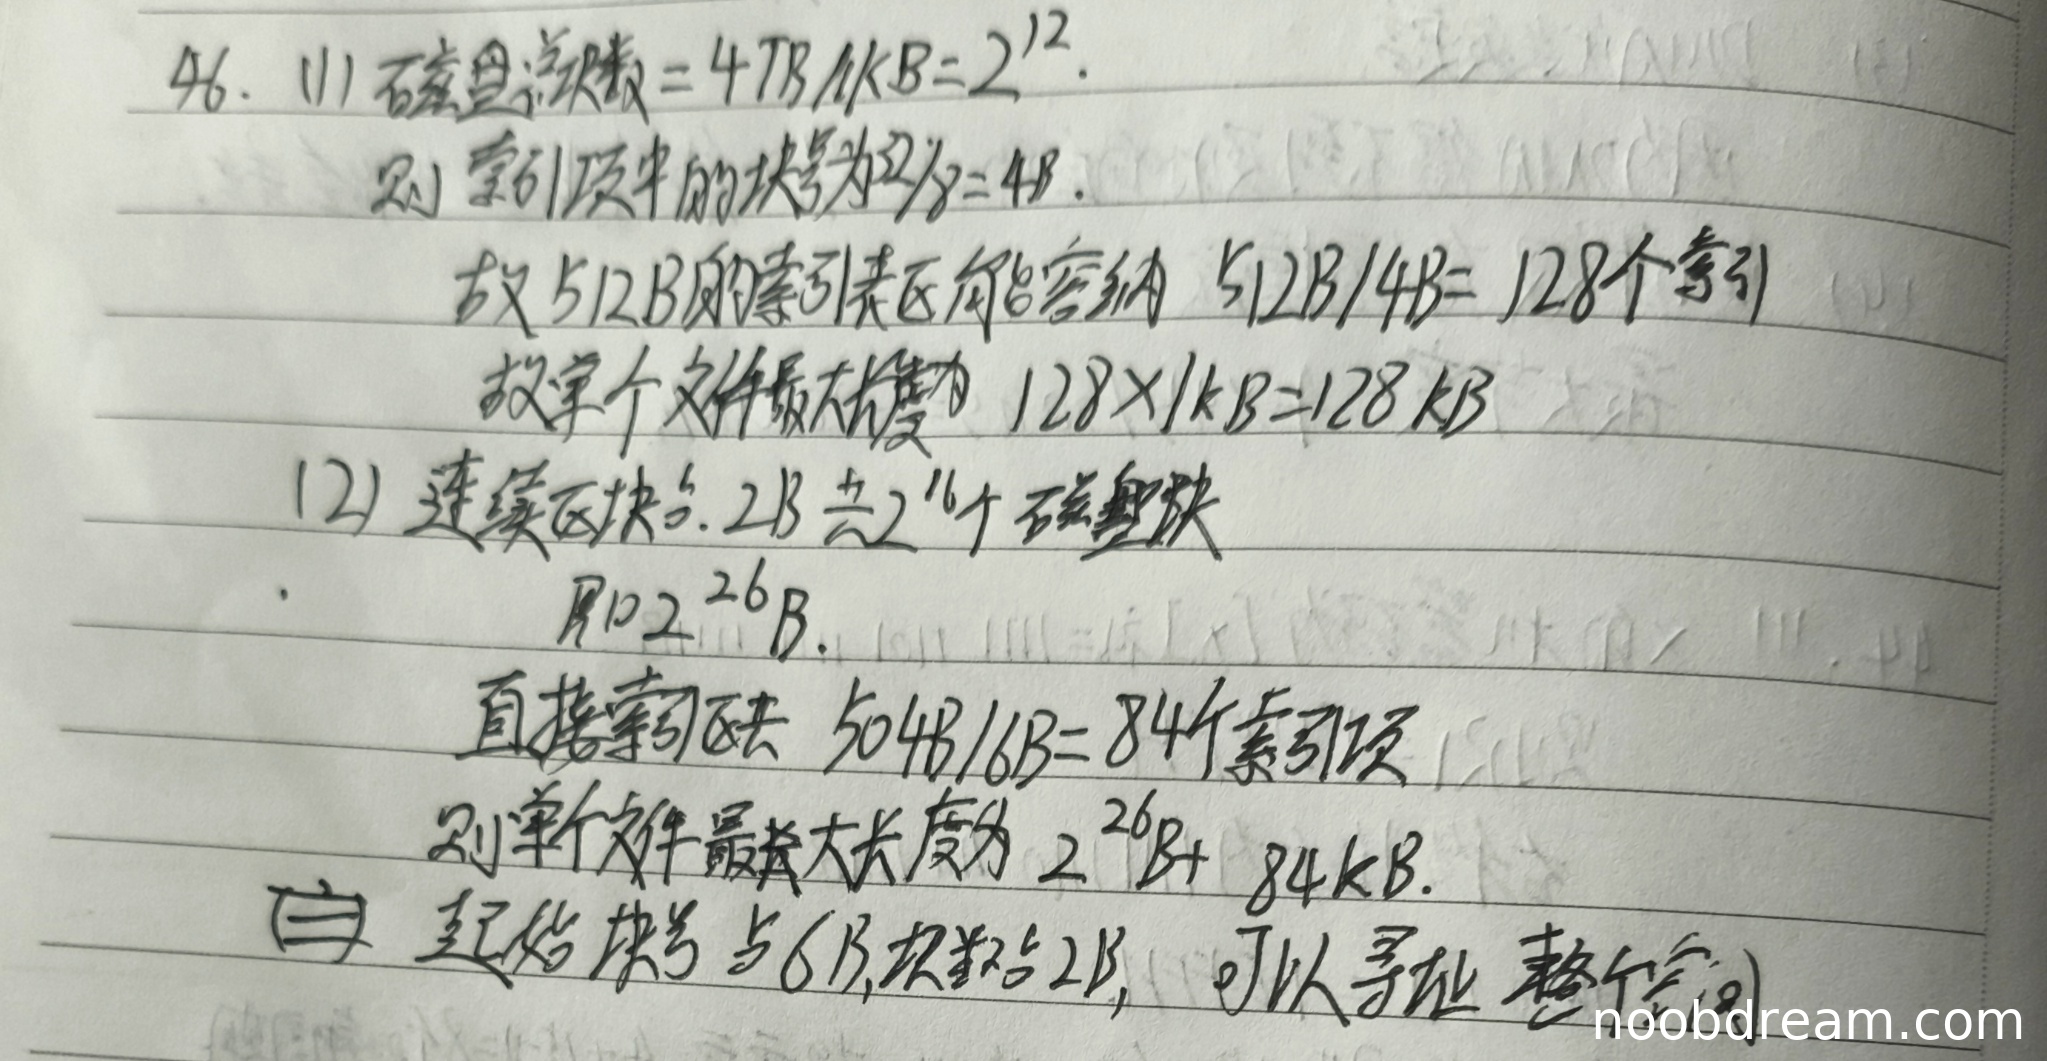 46. (1) 磁盘总块数 = 4TB/1KB = 2^12.
则 索引项中的块号为32/8=4B.
故512B的索引表区能容纳 512B/4B= 128个索引
故单个文件最大长度为 128×1KB=128KB
(2) 连续区块占.2B 共2^16个 磁盘块
即2^26B.
直接索引区共 504B/6B=84个索引项
则单个文件最大长度为 2^26B+ 84KB.
起始块号占6B,块数占2B, 可以寻址 整个空间
noobdream.com